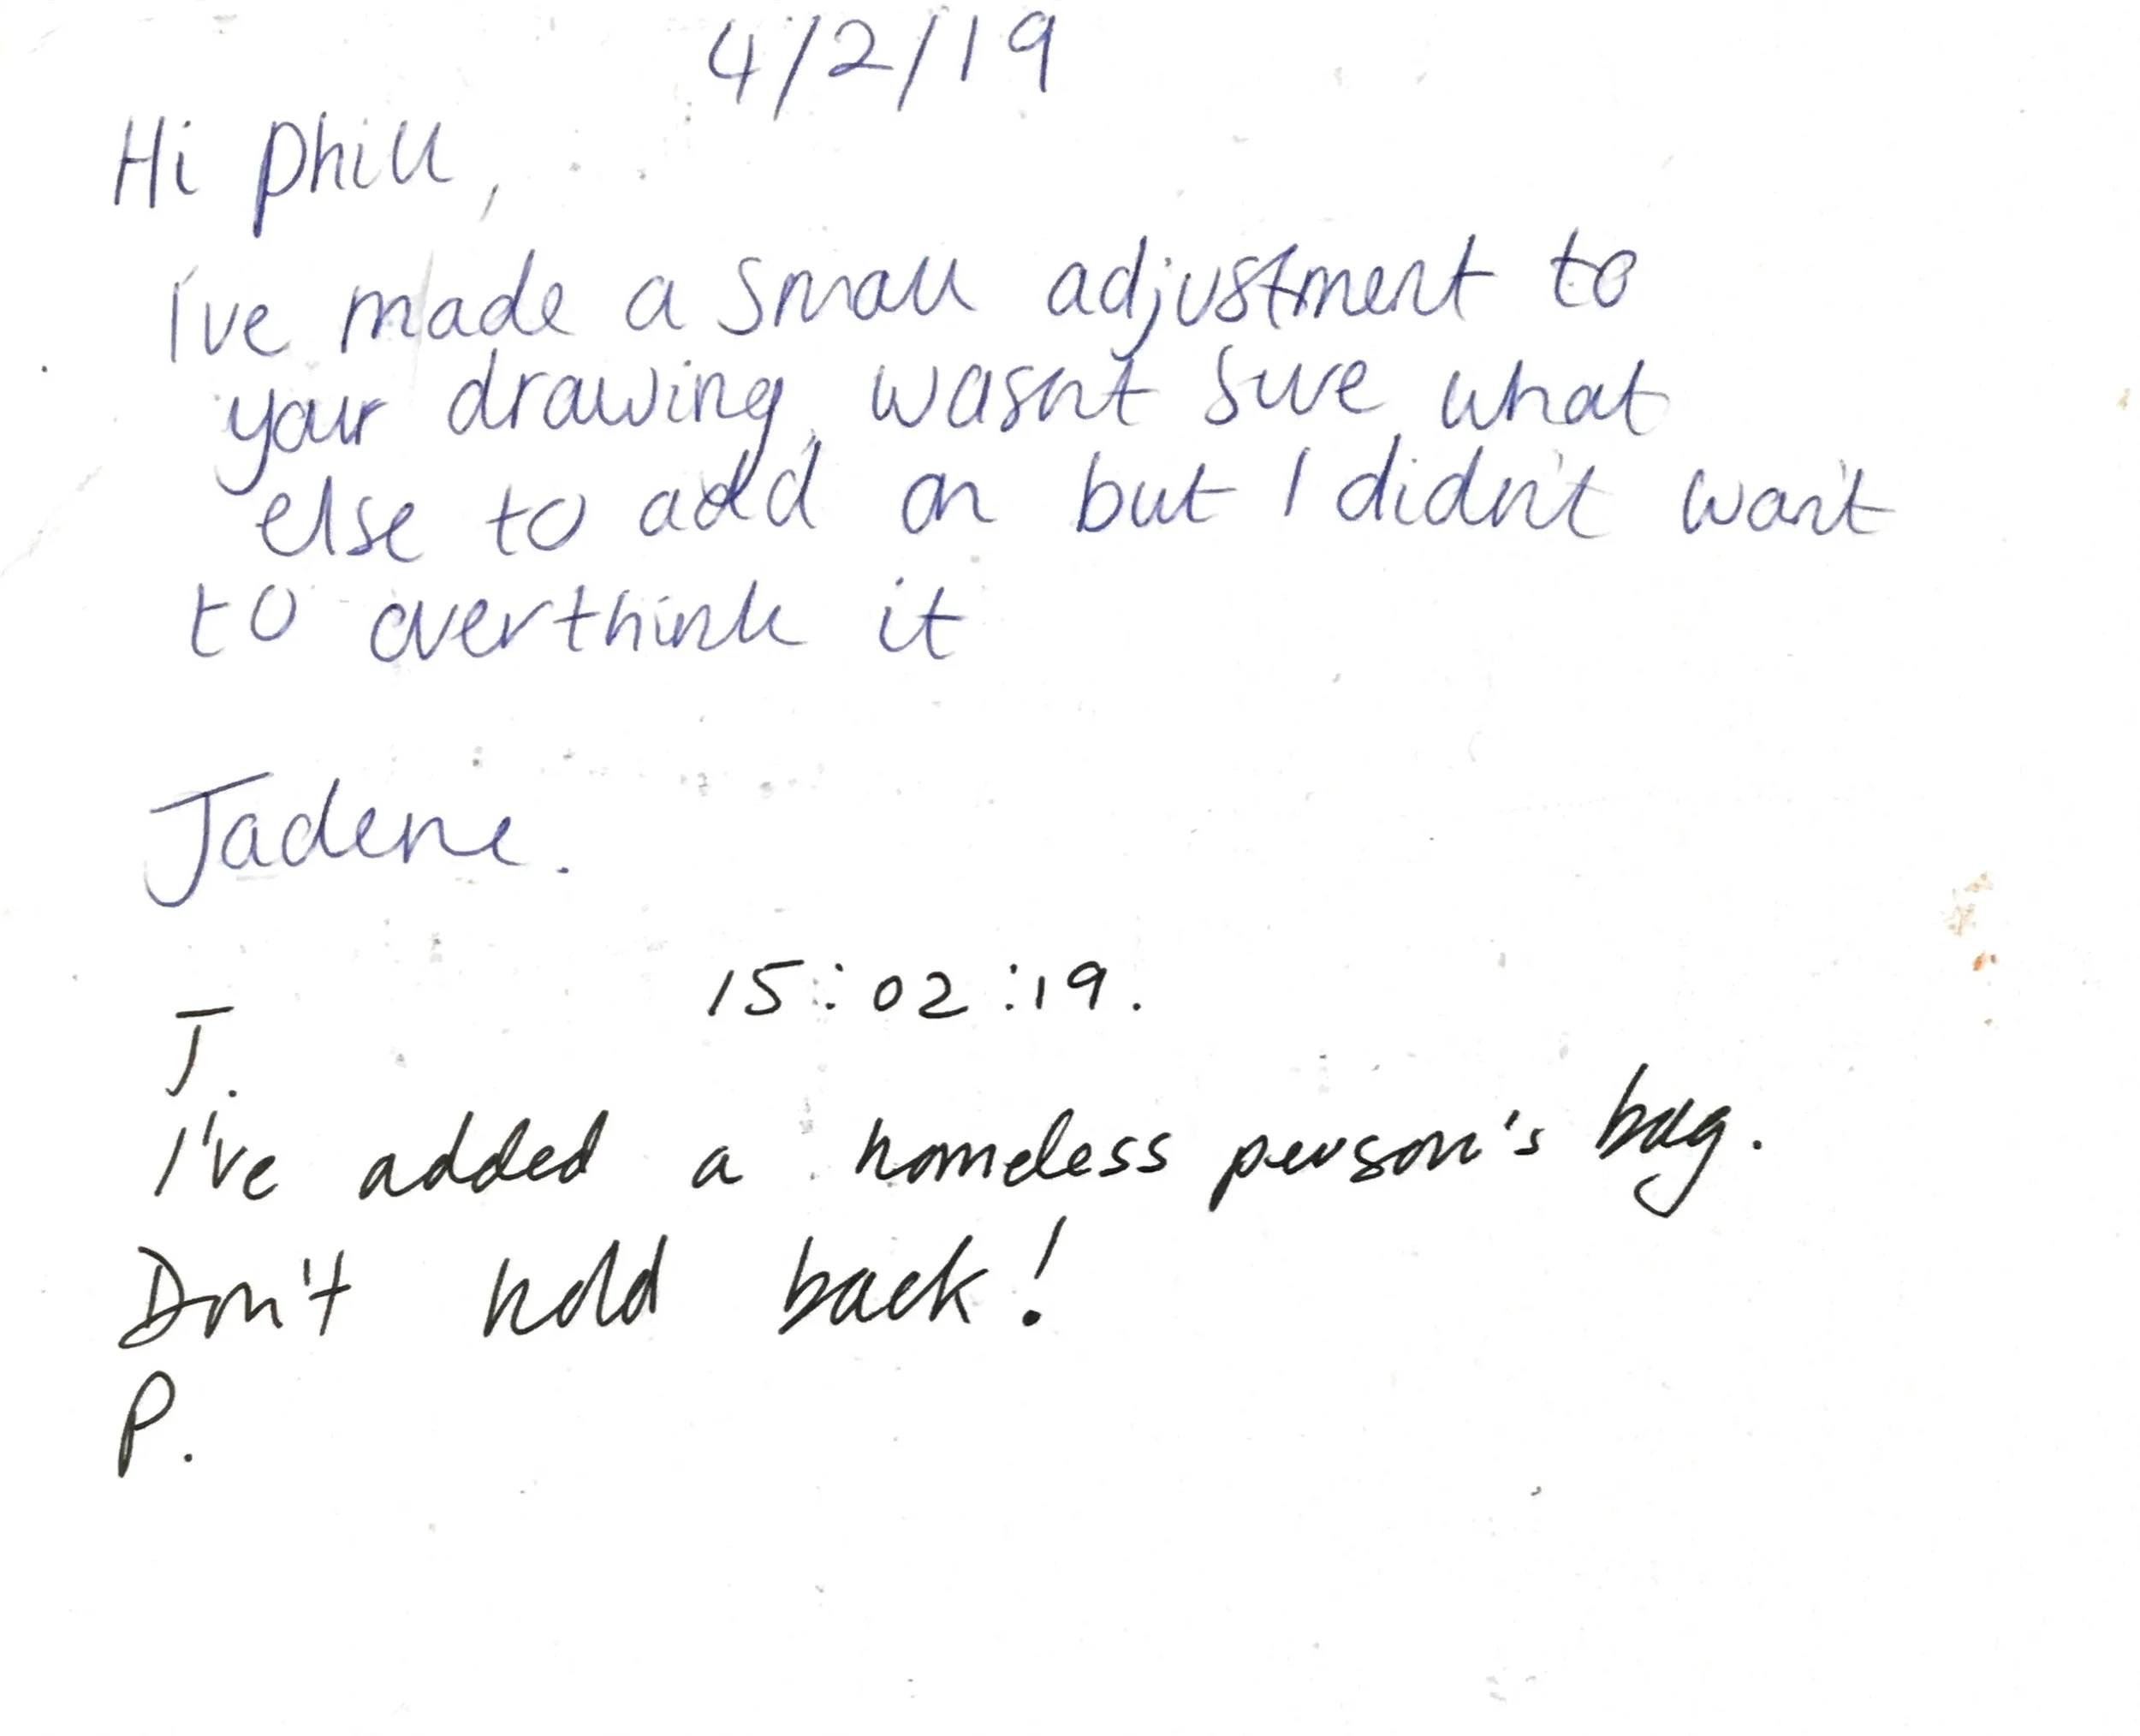 4/2/19
Hi Phill,
I've made a small adjustment to
your drawing, wasnt sure what
else to add on but I didn't want
to overthink it
Jadene.
15:02:19.
J.
I've added a homeless person's bag.
Don't hold back!
P.